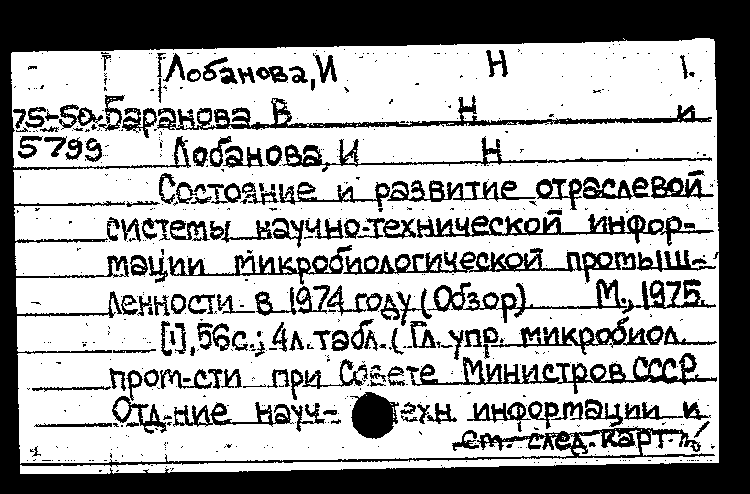 Лобанова, И Н 1.
75-50 Баранова, В Н и
5799 Лобанова, И Н
Состояние и развитие отраслевой
системы научно-технической инфор-
мации микробиологической промыш-
ленности в 1974 году (Обзор). М., 1975.
[1], 56с.; 4л. табл. (Гл. упр. микробиол.
пром-сти при Совете Министров СССР.
Отд-ние науч- техн. информации и
См. след. карт.